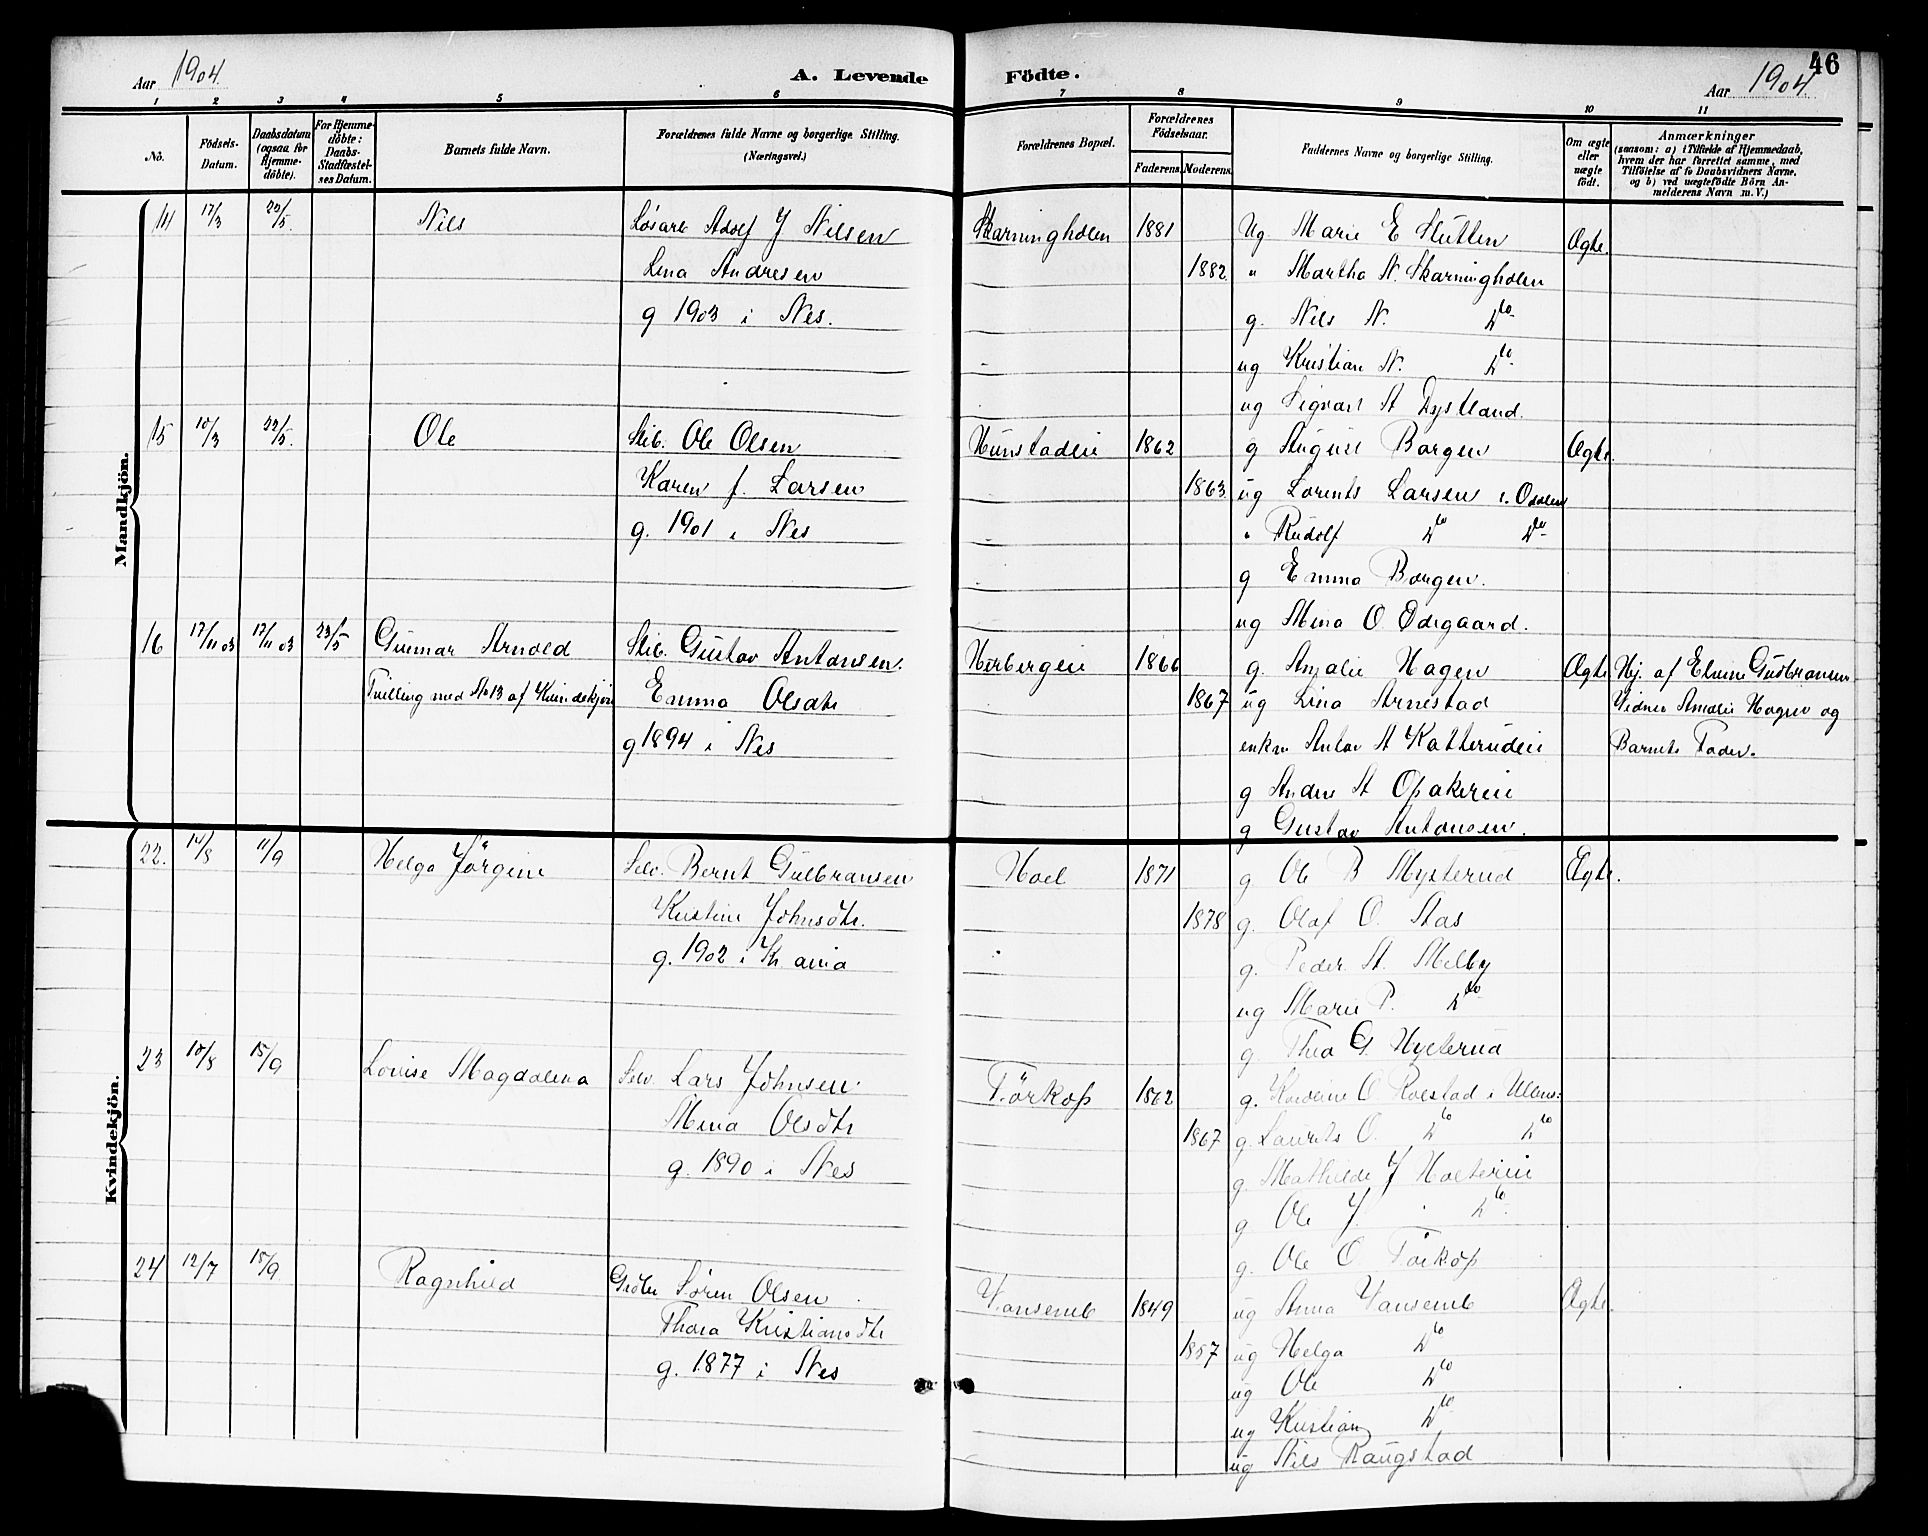 46
Aar 1904.
A. Levende Födte.
Aar 1904.
1 2 3 4 5 6 7 8 9 10 11
No.
Födsels-Datum.
Daabsdatum (ogsaa for Hjemme-döbte).
For Hjemme-döbte: Daabs-Stadfæstel-ses Datum.
Barnets fulde Navn.
Forældrenes fulde Navne og borgerlige Stilling. (Næringsvei.)
Forældrenes Bopæl.
Forældrenes Födselsaar.
Faderens. Moderens.
Faddernes Navne og borgerlige Stilling.
Om ægte eller uægte født.
Anmærkninger
(saasom: a) i Tilfælde af Hjemmedaab,
hvem der har forrettet samme, med
Tilföielse af to Daabsvidners Navne,
og b) ved uægtefödte Börn An-
melderens Navn m. V.)
Mandkjön.
14 17/3 23/5. Nils Løsarb Adolf J Nilsen Skarningholen 1881 Ug Marie E Slutten Ægte.
Lina Andresen 1882. " Martha N. Skarningholen
g 1903 i Nes. g. Nils N. do
ug Kristian N. do
ug Sigvart A Dystland.
15 10/3 22/5. Ole Ole Olsen Hunstadeie 1862 g August Borgen Ægte.
Karen f. Larsen 1863. ug Lorents Larsen i Odalen
g. 1901 i Nes " Rudolf do do
g Emma Borgen.
ug Mina O Ødegaard.
16 17/11 03 17/11 03 23/5 Gunnar Arnold Gustav Antonsen. Herbergeie 1866 g. Amalie Hagen Ægte Hj. af Elvine Gulbransen
Tvilling med No 13 af Kvindekjøn Emma Olsdtr 1867 ug Lina Arnestad Vidner Amalie Hagen og
g 1894 i Nes enkm Anton A Katterudeie Barnets Fader.
g Andre A Opakereie
g Gustav Antonsen.
Kvindekjön.
22. 14/8 11/9 Helga Jörgine Selv. Bernt Gulbransen Hoel 1871 g Ole B Mysterud Ægte.
Kristine Johnsdtr. 1878 g. Olaf O. Aas
g. 1902 i Kr ania g. Peder A. Melby
ug Marie P. do
g. Thea G. Hycterud
23 10/8 15/9 Lovise Magdalena Selv. Lars Johnsen Törkop 1862 g. O Roestad i Ullens:
Mina Olsdtr 1867 g. Laurits O. do do
g. 1890 i Nes g. Mathilde J Holtereie
g Ole J. do
g. Ole O. Törkop
24 12/7 18/9 Ragnhild Grdbr Sören Olsen Vansemb 1849 ug Anna Vansemb Ægte.
Thora Kristiansdtr 1857 ug Helga do
g. 1877 i Nes ug Ole do
ug Kristian do
ug Nils Raugstad